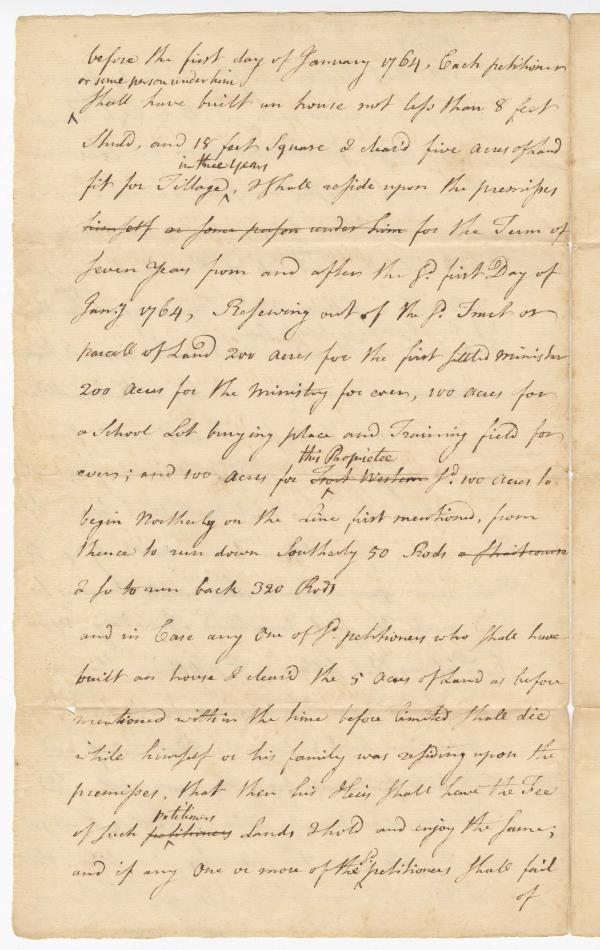 before the first day of January 1764, Each petitioner
or some person under him
Shall have built an house not less than 8 feet
Studd, and 18 feet Square & clear'd five acres of Land
in three years
fit for Tillage, & Shall reside upon the premisses
himself or some person under him for the Term of
Seven Years from and after the sd. first Day of
Jany. 1764, Reserving out of the sd. Tract or
parcell of Land 200 acres for the first settled minister
200 acres for the ministry for ever, 100 acres for
a School Lot burying place and Training field for
this Propietee
ever; and 100 acres for Western sd. 100 acres to
begin Northerly on the Line first mentioned, from
thence to run down Southerly 50 Rods a Strait course
& so to run back 320 Rods
and in Case any One of sd. petitioners who shall have
built an house & clear'd the 5 acres of Land as before
mentioned within the time before limited shall die
while himself or his family was residing upon the
premisses, that then his Heirs shall have the Fee
petitioners
of such petitioners Lands & hold and enjoy the same;
sd.
and if any One or more of the petitioners shall fail
of